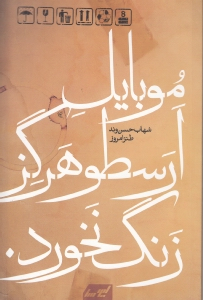 موبایل
شهاب حسن‌وند
طنز امروز
ارسطو هرگز
زنگ نخورد.